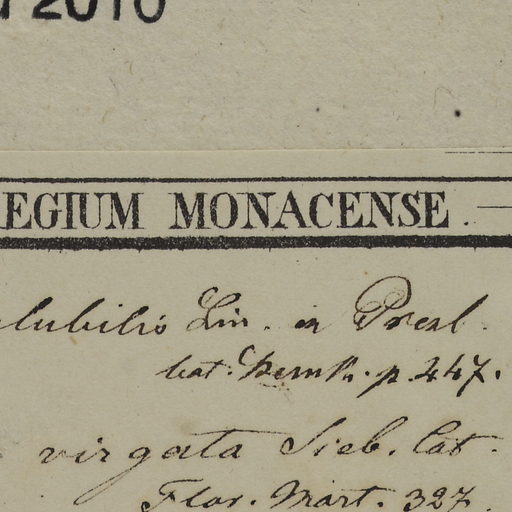 2010
EGIUM MONACENSE
lubilis Lin. ex Presl.
bot. Bemk. p. 447.
virgata Sieb. Cat.
Flor. Mart. 327.